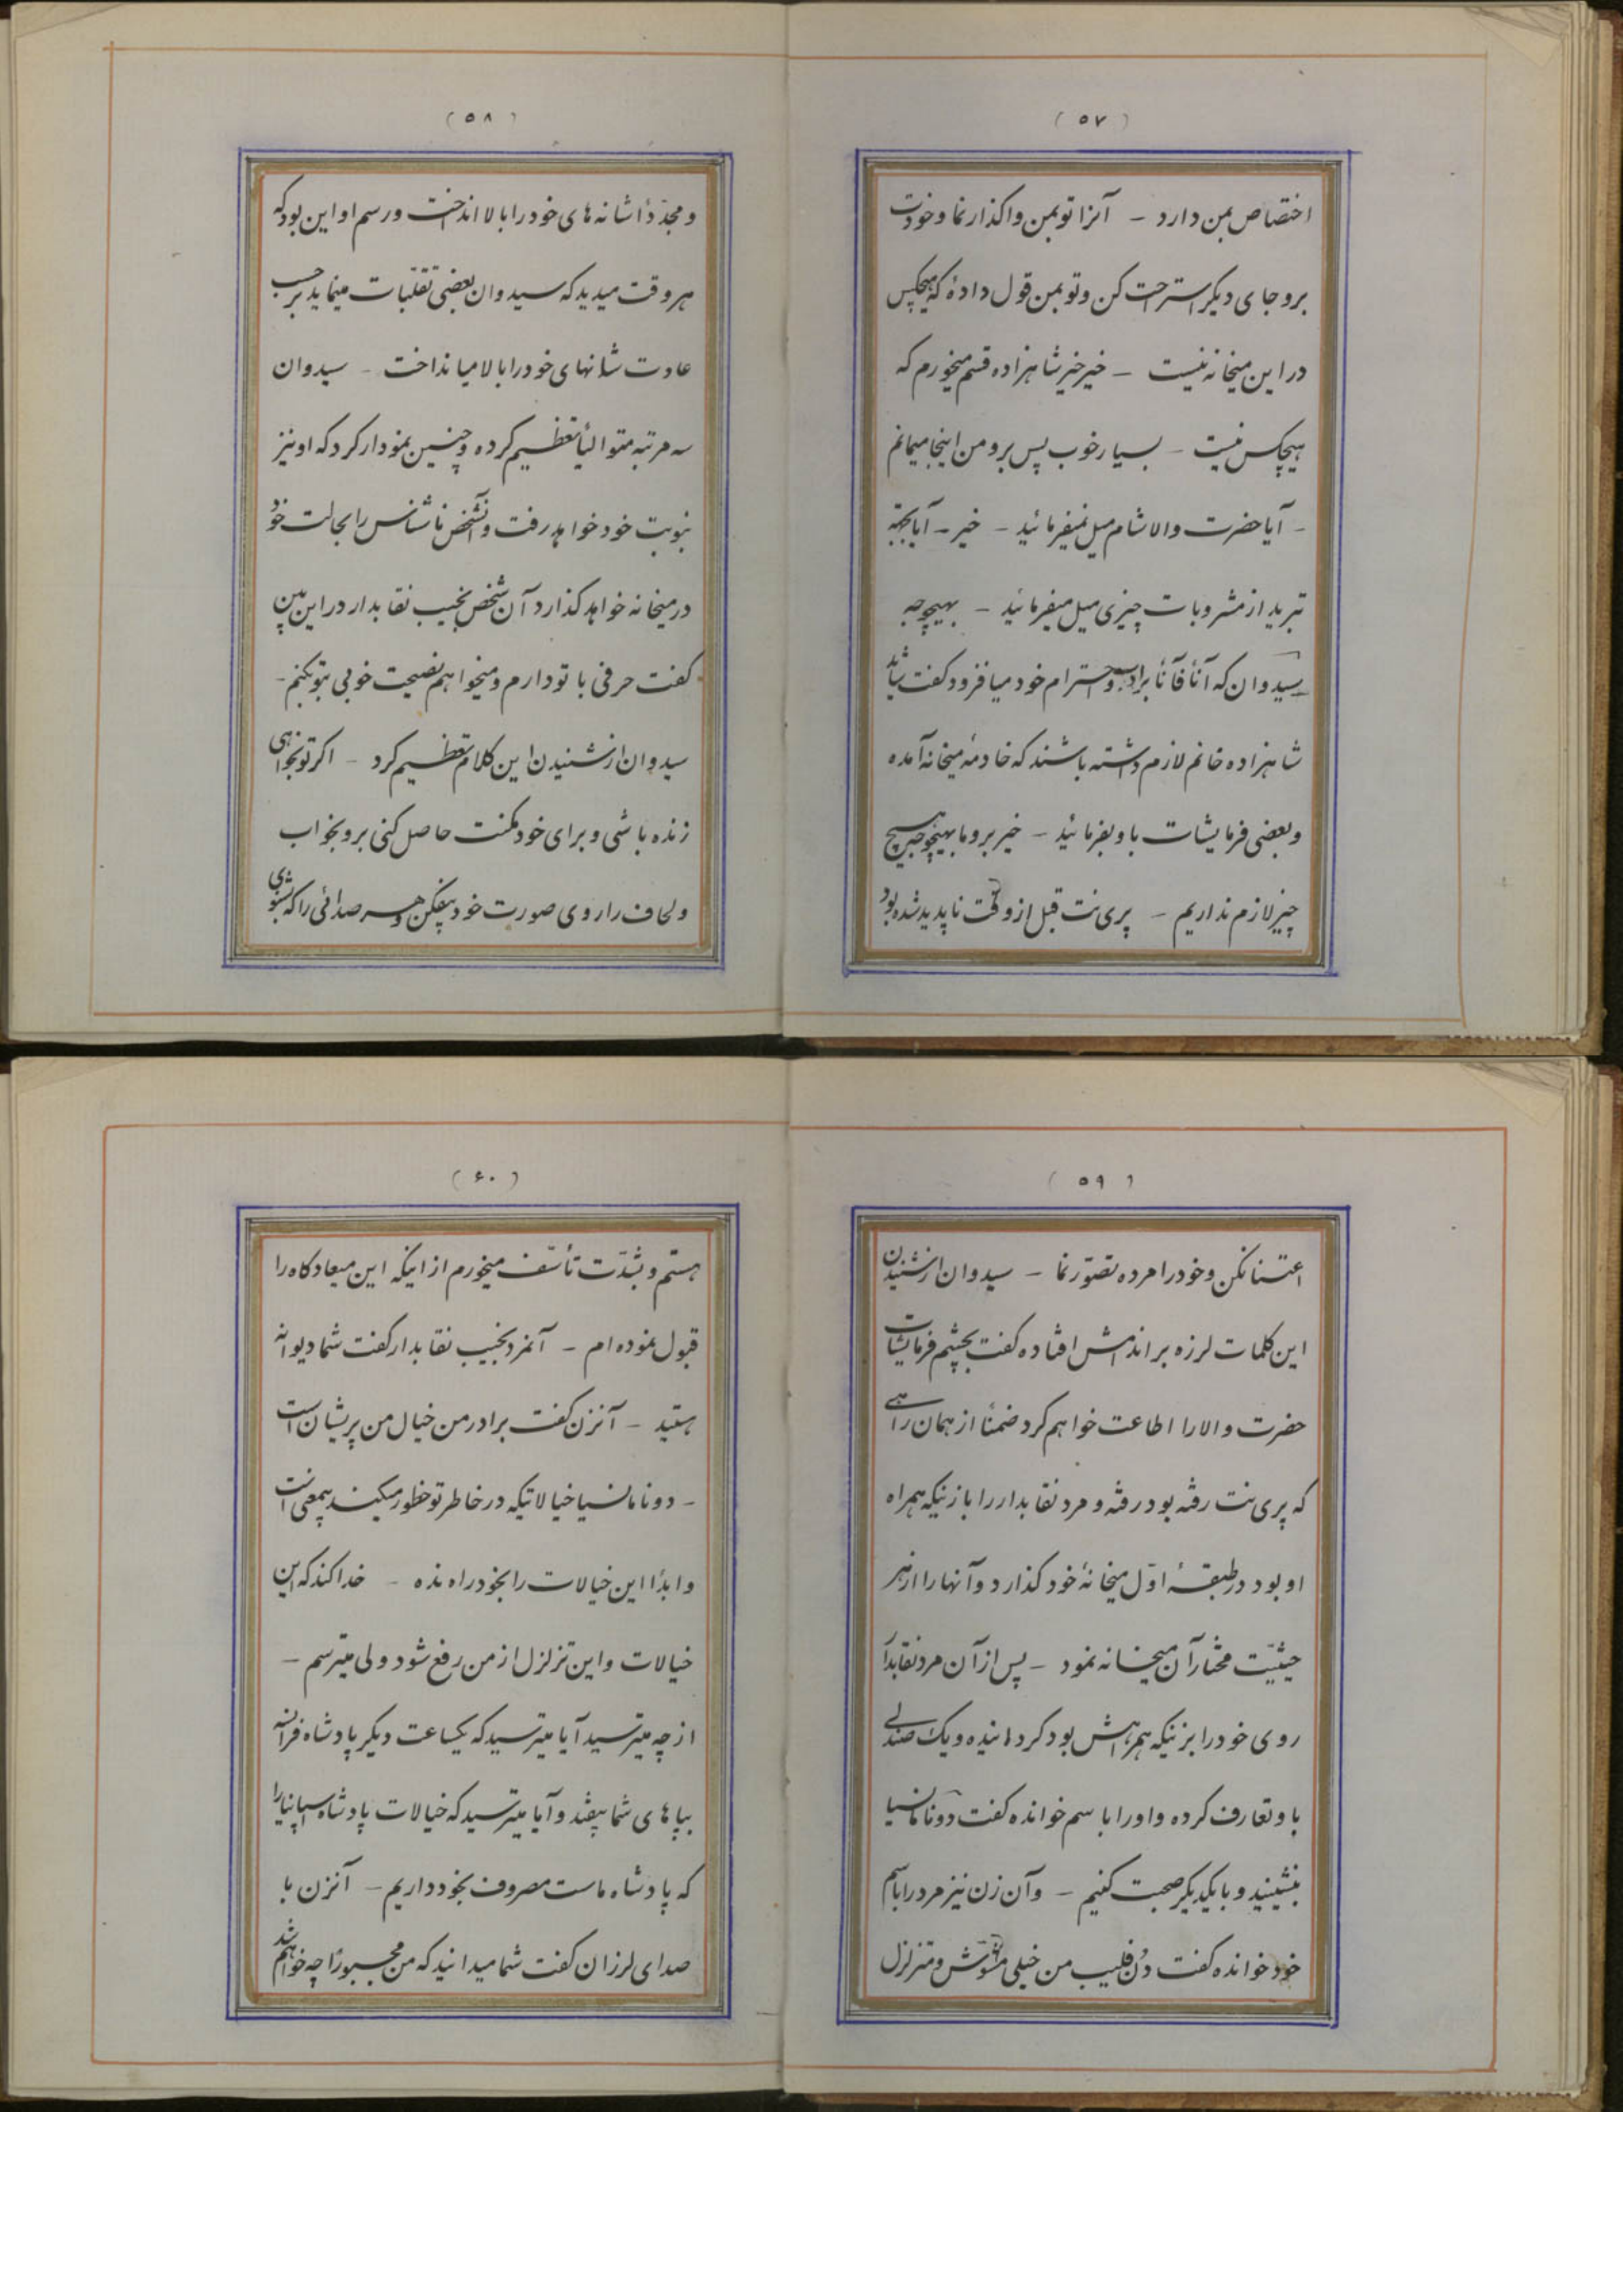 (۵۷)
اختصاص بمن دارد – آنرا تو بمن واگذار نما و خودت
برو جای دیگر استراحت کن و تو بمن قول دادهٔ که هیچکس
در این میخانه نیست – خیر خیر شاهزاده قسم میخورم که
هیچکس نیست – بسیار خوب پس برو من اینجا میمانم
– آیا حضرت والا شام میل نمیفرمائید – خیر – آیا بجهة
تبرید از مشروبات چیزی میل میفرمائید – بهیچوجه
سیدوان که آناً فآناً بر ادب و احترام خود میافزود گفت شاید
شاهزاده خانم لازم داشته باشند که خادمهٔ میخانه آمده
و بعضی فرمایشات باو بفرمائید – خیر برو ما بهیچوجه هیچ
چیز لازم نداریم – پری نت قبل از وقت ناپدید شده بود
(۵۸)
و مجدّداً شانه های خود را بالا انداخت و رسم او این بود که
هر وقت میدید که سیدوان بعضی تقلّبات مینماید بر حسب
عادت شانهای خود را بالا میانداخت – سیدوان
سه مرتبه متوالیاً تعظیم کرده و چنین نمودار کرد که او نیز
بنوبت خود خواهد رفت و آنشخص ناشناس را بحالت خود
در میخانه خواهد گذارد آن شخص نجیب نقابدار در این بین
گفت حرفی با تو دارم و میخواهم نصیحت خوبی بتو بکنم –
سیدوان از شنیدن این کلام تعظیم کرد – اگر تو بخواهی
زنده باشی و برای خود مکنت حاصل کنی برو بخواب
و لحاف را روی صورت خود بیفکن و هر صدائی را که بشنوی
(۵۹)
اعتنا نکن و خود را مرده تصوّر نما – سیدوان از شنیدن
این کلمات لرزه بر اندامش افتاده گفت بچشم فرمایشات
حضرت والا را اطاعت خواهم کرد ضمناً از همان راهی
که پری نت رفته بود رفته و مرد نقابدار را با زنیکه همراه
او بود در طبقهٔ اوّل میخانهٔ خود گذارد و آنها را از هر
حیثیّت مختار آن میخانه نمود – پس از آن مرد نقابدار
روی خود را بزنیکه همراهش بود گردانیده و یک صندلی
باو تعارف کرده و او را با سم خوانده گفت دونا مانسیا
بنشینید و با یکدیگر صحبت کنیم – و آن زن نیز مرد را باسم
خود خوانده گفت دُن فلیپ من خیلی مشوّش و متزلزل
(۶۰)
هستم و بشدّت تأسّف میخورم از اینکه این میعادگاه را
قبول نموده ام – آنمرد نجیب نقابدار گفت شما دیوانه
هستید – آنزن گفت برادر من خیال من پریشان است
– دونا مانسیا خیالاتیکه در خاطر تو خطور میکنند بیمعنی است
و ابداً این خیالات را بخود راه نده – خدا کند که این
خیالات و این تزلزل از من رفع شود ولی میترسم –
از چه میترسید آیا میترسید که یکساعت دیگر پادشاه فرانسه
بپاهای شما بیفتد و آیا میترسید که خیالات پادشاه اسپانیا را
که پادشاه ماست مصروف بخود داریم – آنزن با
صدای لرزان گفت شما میدانید که من مجبوراً چه خواهم شد